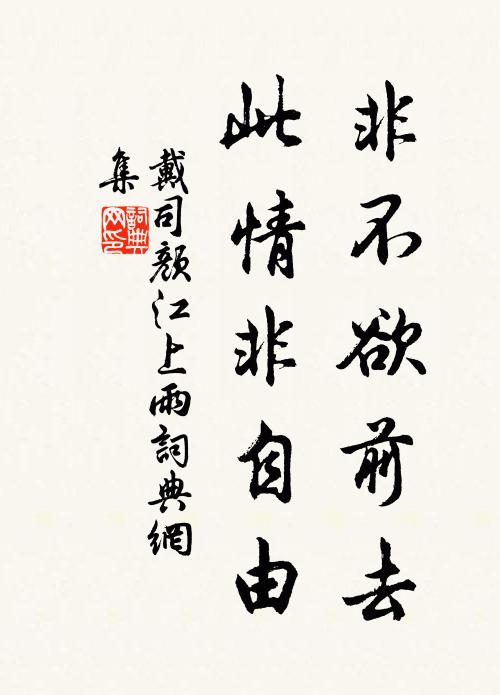 非不欲前去
此情非自由
戴司顏江上雨詞典網
集
詞典网印